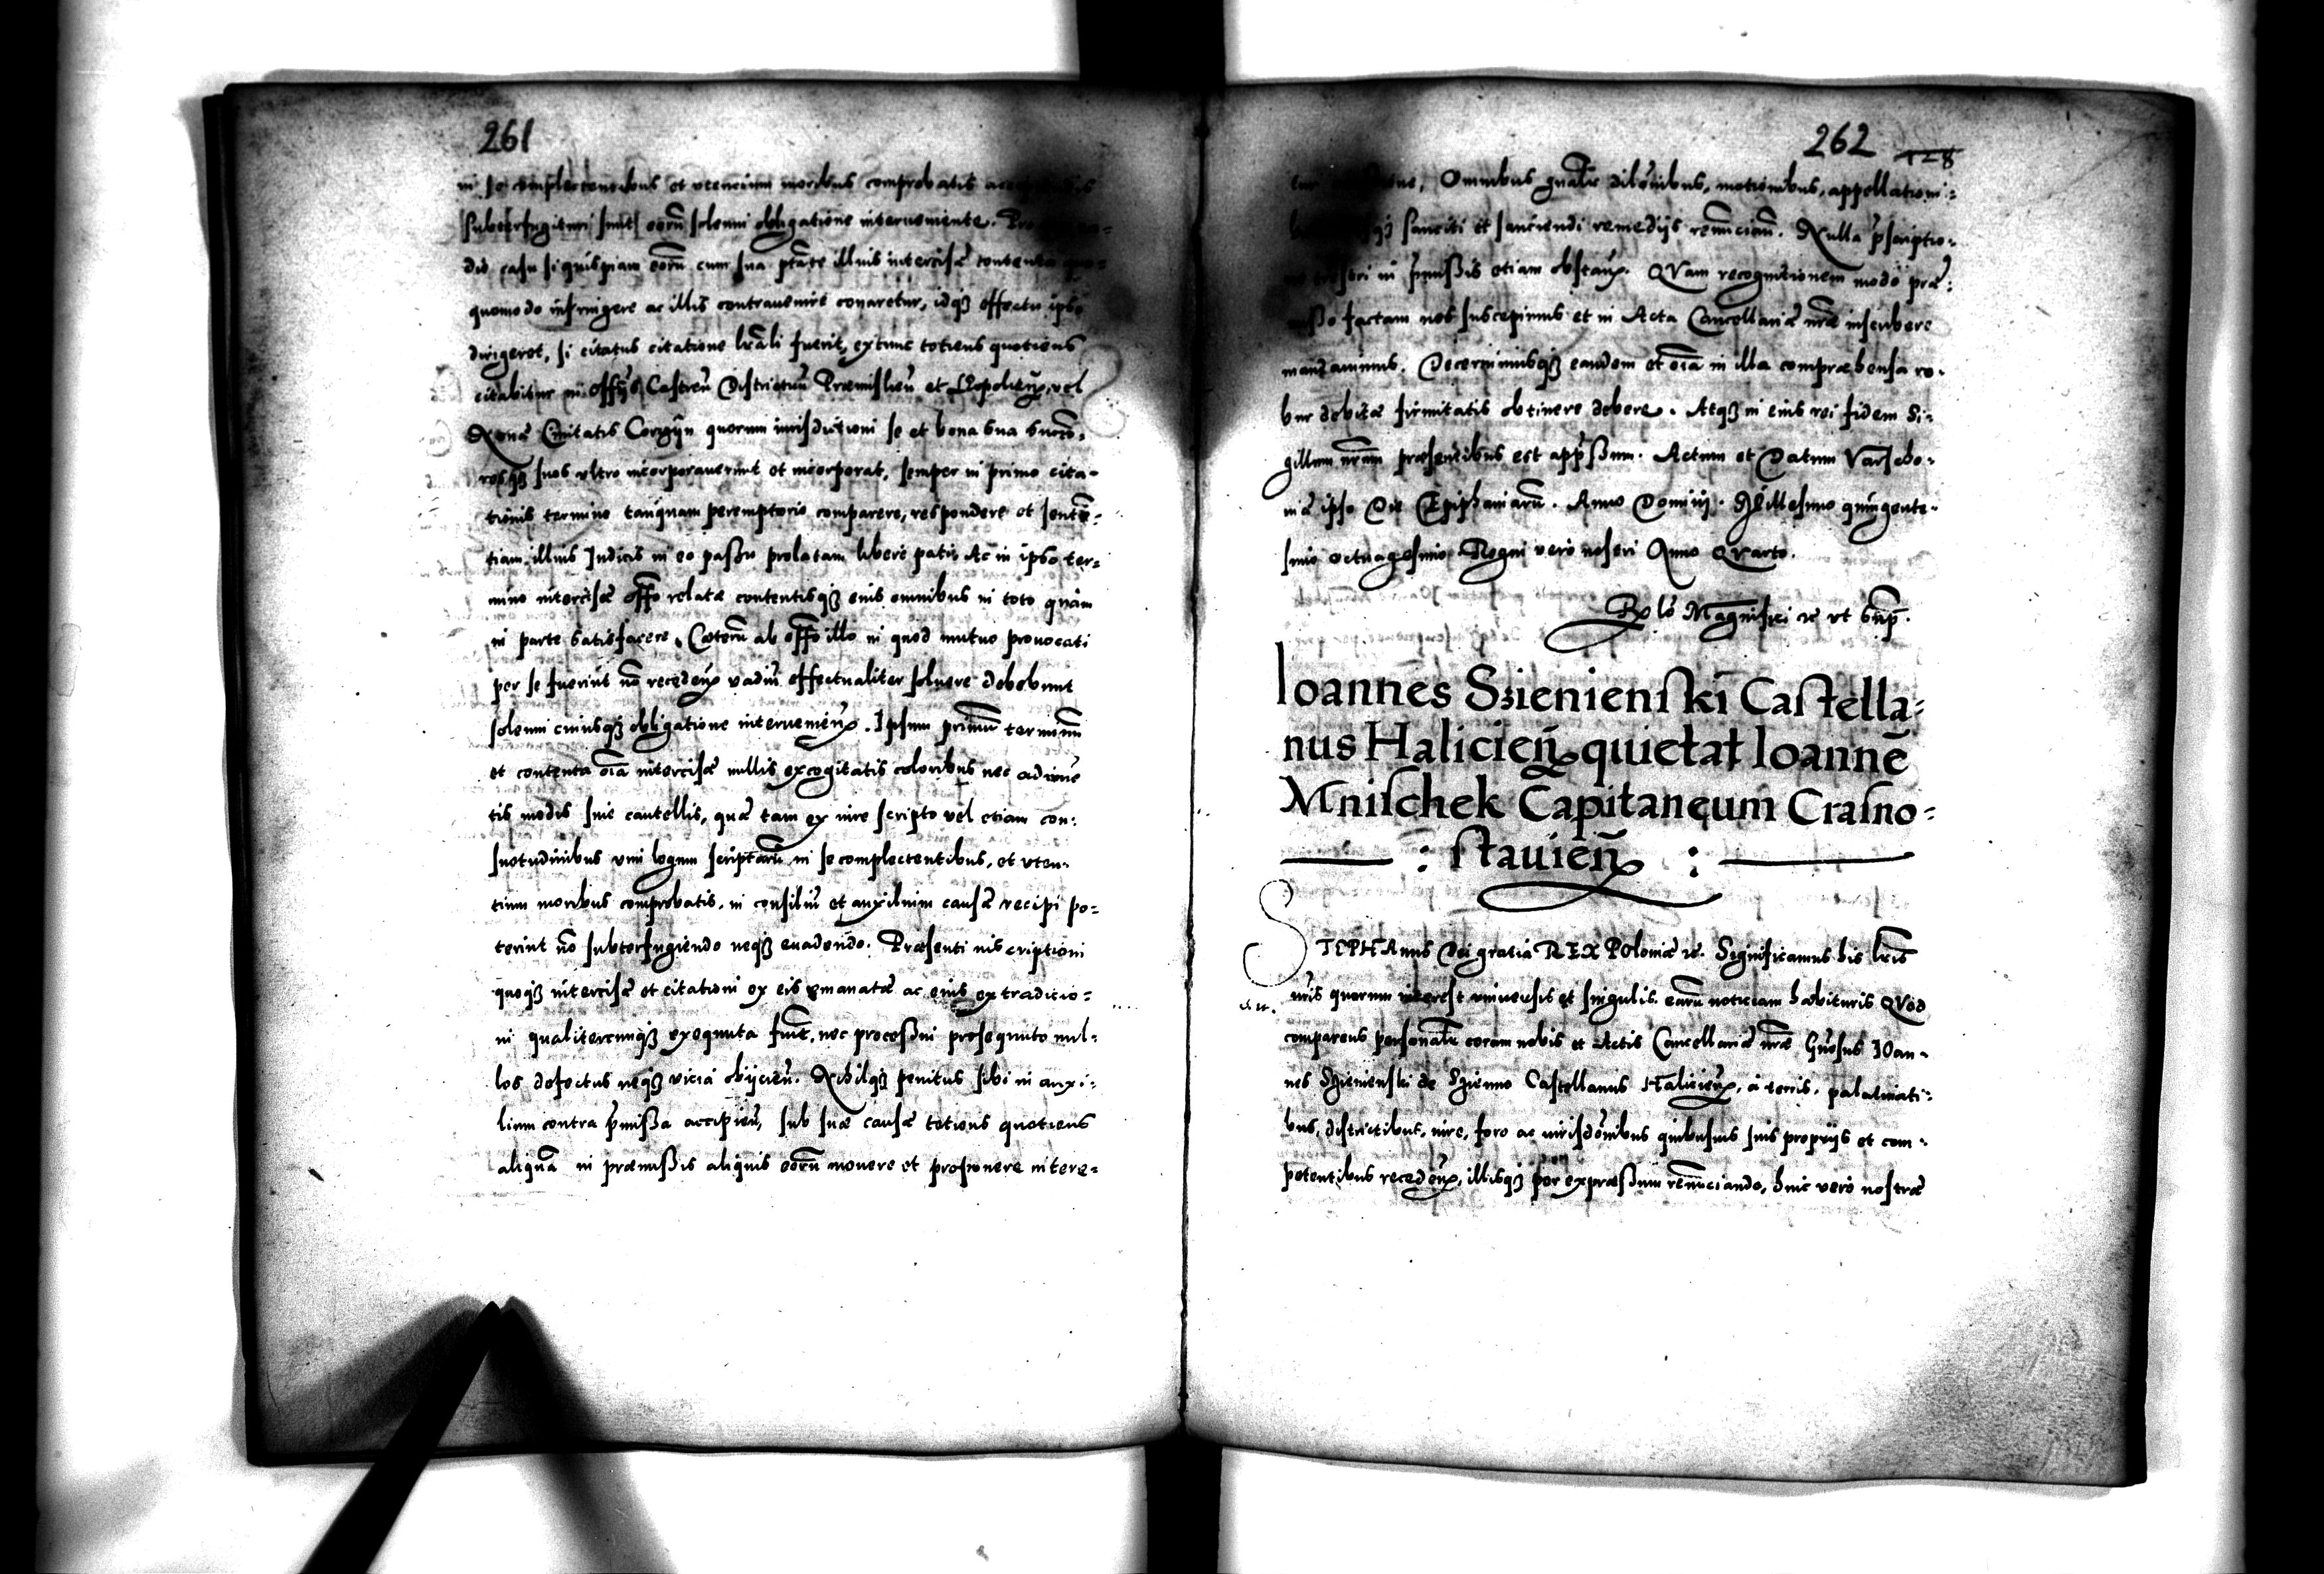 261
in se complectentibus et utencium moribus comprobatis
subterfugituri sunt eorū solenni obligatione interueniente.
dio casu si quispiam eorū cum sua ptāte illius intercisæ contenta quo-
quomodo infringere ac illis contrauenire conaretur, idq₃ effectu ipso
dirigeret, si citatus citatione lr̄ali fuerit, extunc totiens quotiens
citabitur in offys Castreñ Districtuū Præmislieñ et Leopolieñ, vel
Nonæ Ciuitatis Corczyn quorum iurisdictioni se et bona sua succō-
rosq₃ suos vltro incorporauerunt et incorporat, semper in primo cita-
tionis termino tanquam peremptorio comparere, respondere et sentē-
tiam illius Judicis in eo passu prolatam libere pati, Ac in ipso ter-
mino intercisæ offo relatæ contentisq₃ eius omnibus in toto quàm
in parte satisfacere. Cæterū ab offo illo in quod mutuo prouocati
per se fuerint nō recedeñ vadiū effectualiter soluere debebunt
solenni cuiusq₃ obligatione interuenieñ. Ipsum primū terminū
et contenta oīa intercisæ nullis excogitatis coloribus nec adinuē
tis modis siue cautellis, quæ tam ex iure scripto vel etiam con-
suetudinibus vim legum scriptarū in se complectentibus, et vten-
tium moribus comprobatis, in consiliū et auxilium causæ recipi po-
terint nō subterfugiendo neq₃ euadendo. Præsenti inscriptioni
quoq₃ intercisæ et citationi ex eis emanatæ ac eius extraditio-
ni qualitercunq₃ exequuta fuit, nec processui prosequuto nul-
los defectus neq₃ vicia obijcieñ. Nihilq₃ penitus sibi in auxi-
lium contra p̄missa accipieñ, sub suæ causæ totiens quotiens
aliquā in præmissis aliquis eorū mouere et proponere intere-
262 128
Omnibus gnāliter dilōnibus, motionibus, appellationi-
sanciti et sanciendi remedijs renūciañ. Nulla p̄scriptio-
in p̄missis etiam obstañ. QVam recognitionem modo præ-
misso factam nos suscepimus et in Acta Cancellariæ nræ inscribere
mandauimus. Decernimusq₃ eandem et oīa in illa compræhensa ro-
bur debitæ firmitatis obtinere debere. Atq₃ in eius rei fidem Si-
gillum nrūm præsentibus est app̄ssum. Actum et Datum Varscho-
uiæ ipso Die Epiphaniarū. Anno Dominj. Millesimo quingente-
simo octuagesimo Regni vero nostri Anno QVarto.
Rel̄o Magnifici ꝛc vt sup̄.
Ioannes Szienienski Castella-
nus Halicieñ quietat Ioannē
Mnischek Capitaneum Crasno-
: stauieñ :
STEPHAnus Dei gratia REX Poloniæ ꝛc. Significamus his lr̄is
nr̄is quorum interest vniuersis et singulis. earū noticiam habituris QVod
comparens personalr̄ coram nobis et Actis Cancellariæ nræ Gn̄osus IOan-
nes Szienienski de Szienno Castellanus Halicieñ, à terris, palatinati-
bus, districtibus, iure, foro ac iurisdōnibus quibusuis suis proprijs et com-
petentibus recedeñ, illisq₃ per expræssum renūciando, huic vero nostræ